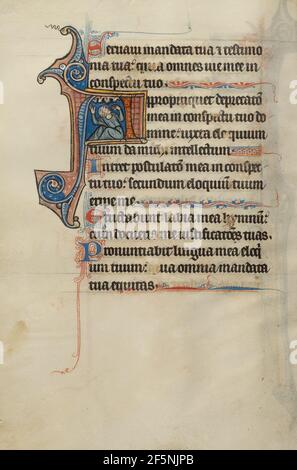 Servaui mandata tua et testimo
nia tua: quia omnes uie mee in
conspectu tuo.
Appropinquet deprecatio
mea in conspectu tuo do
mine: iuxta eloquium
tuum da michi intellectum.
Intret postulatio mea in conspec
tu tuo: secundum eloquium tuum
eripe me.
Eructabunt labia mea hymnum:
cum docueris me iustificationes tuas.
Pronuntiabit lingua mea eloqui
um tuum: quia omnia mandata
tua equitas.
alamy
Image ID: 2F5NJPB
www.alamy.com